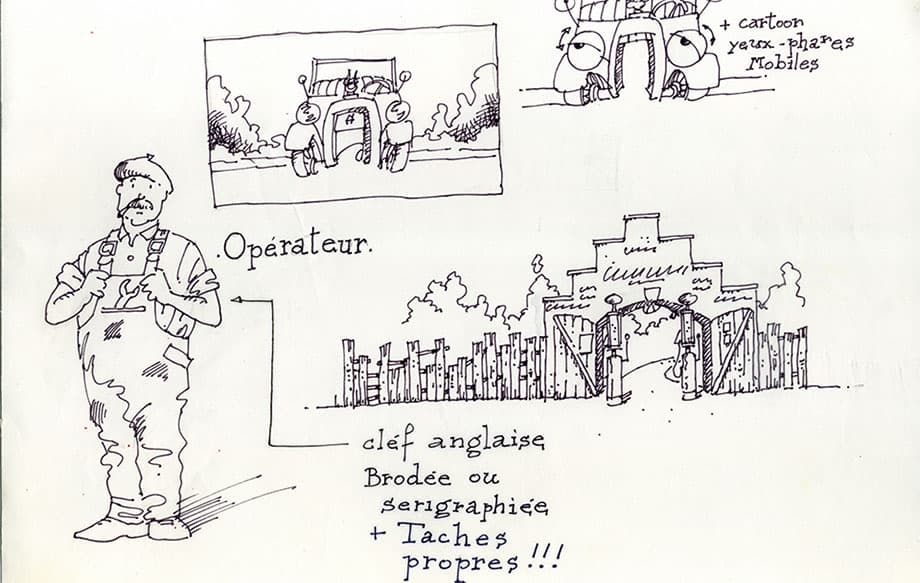 + cartoon
yeux-phares
Mobiles
#
.Opérateur.
cléf anglaise
Brodée ou
serigraphiée
+ Taches
propres!!!